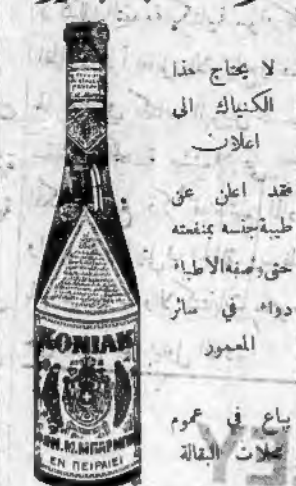 لا يحتاج هذا
الكنياك الى
اعلان
فقد اعلن عن
طيبة جنسه بمنفعته
حتى وصفه الاطباء
دواء في سائر
المعمور
يباع في عموم
محلات البقالة
KONIAK
ΕΝ ΠΕΙΡΑΙΕΙ